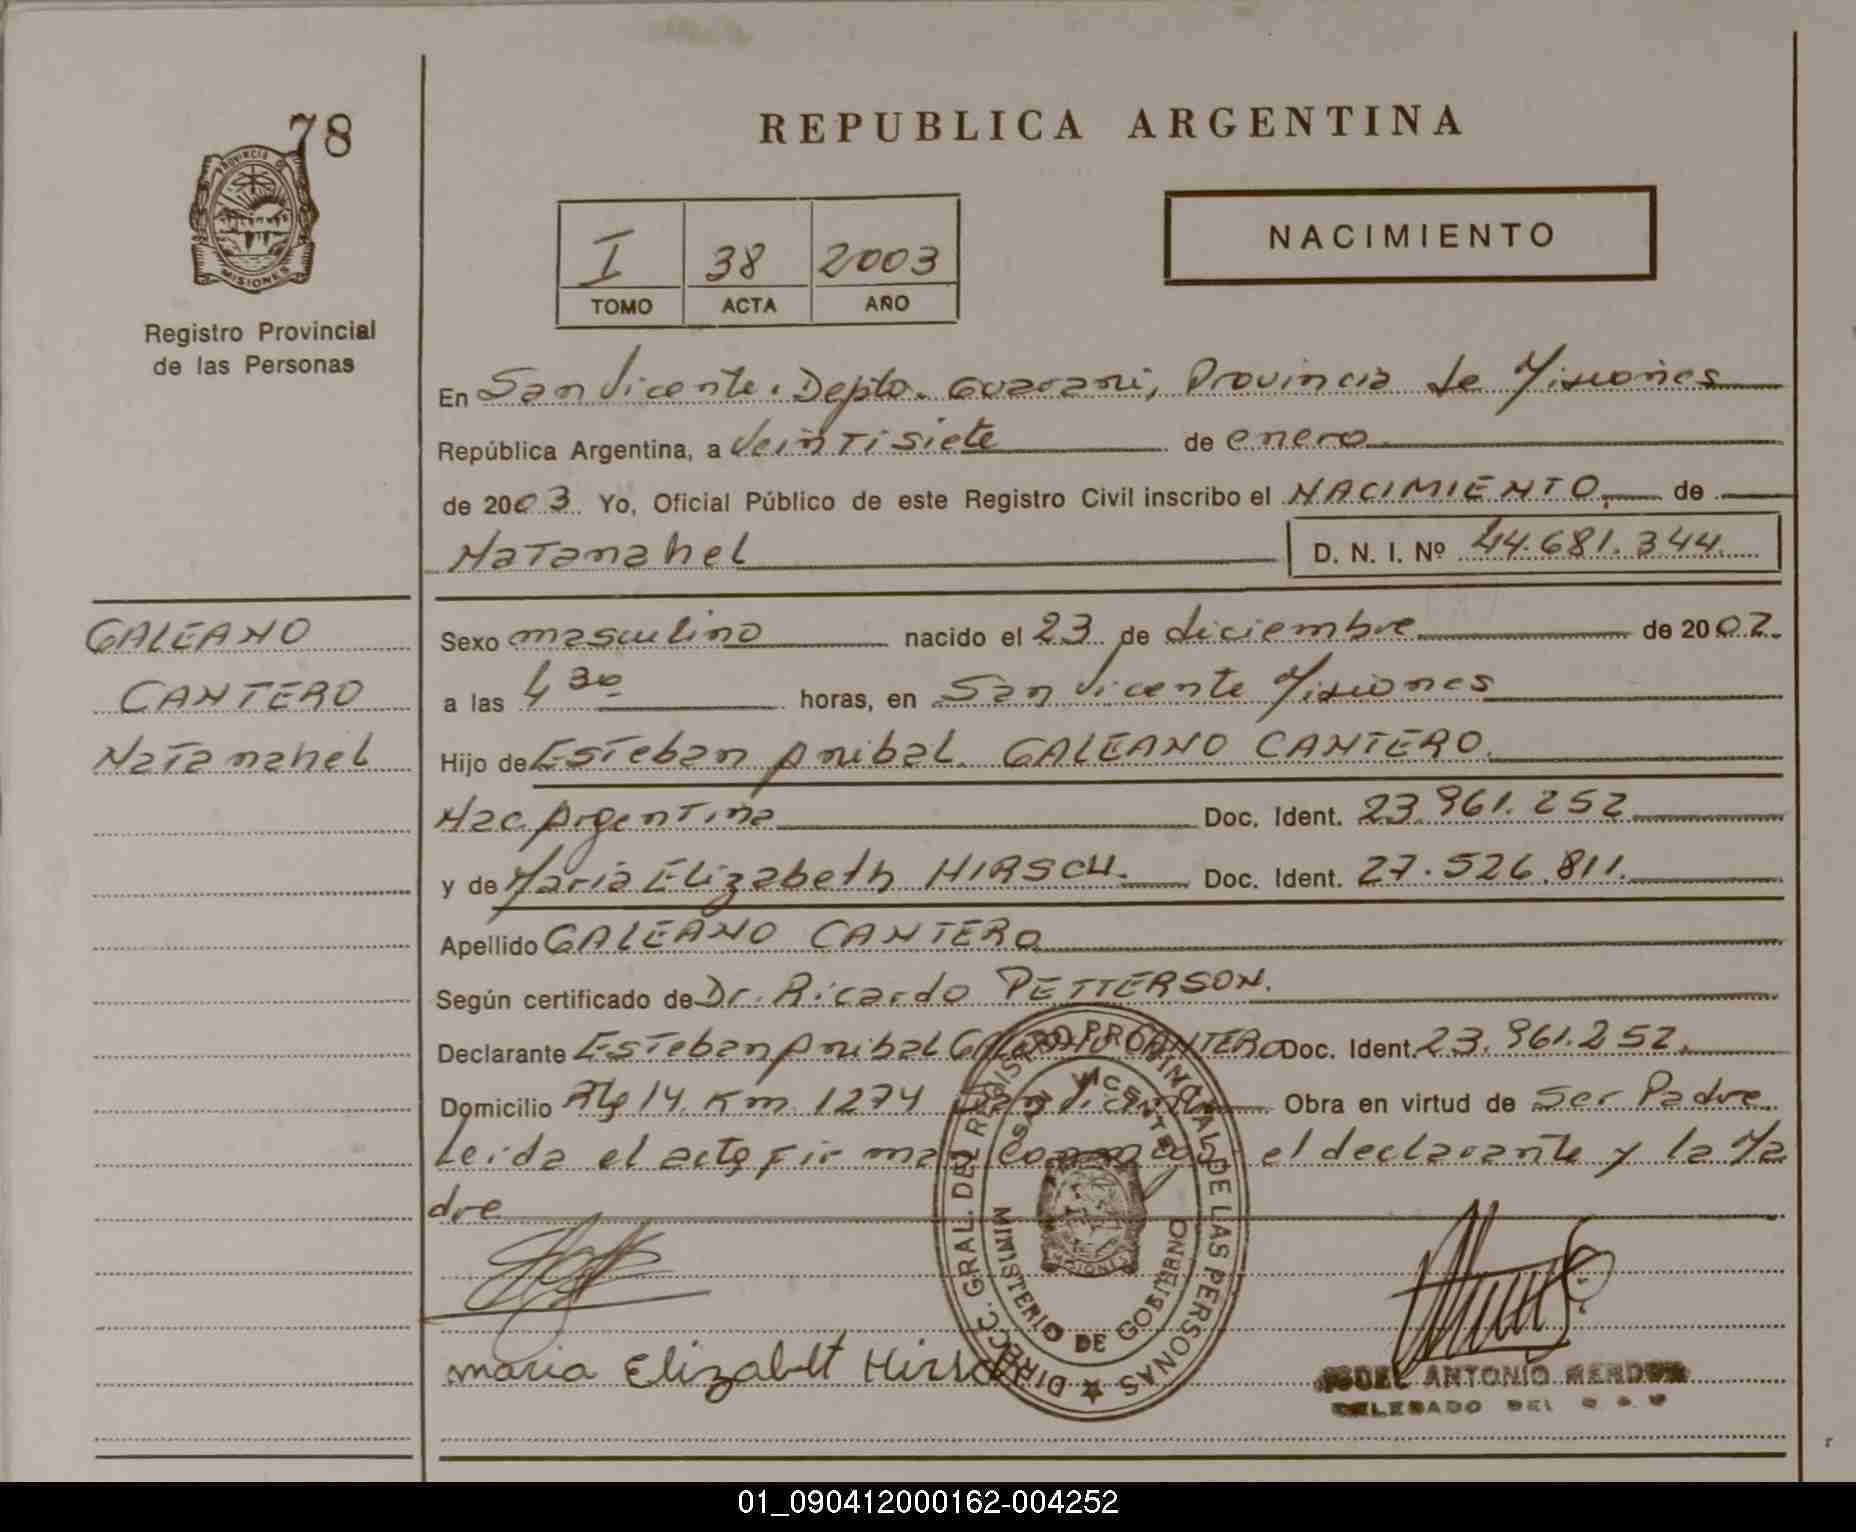 78
PROVINCIA DE
MISIONES
Registro Provincial
de las Personas
REPUBLICA ARGENTINA
I 38 2003
TOMO ACTA AÑO
NACIMIENTO
En San Vicente. Depto. Guarani, Provincia de Misiones
República Argentina, a Veintisiete de enero
de 2003. Yo, Oficial Público de este Registro Civil inscribo el NACIMIENTO, de
Natanahel D. N. I. Nº 44.681.344
GALEANO
CANTERO
Natanahel
Sexo masculino nacido el 23 de diciembre de 2002.
a las 4 30 horas, en San Vicente Misiones
Hijo de Esteban Anibal GALEANO CANTERO.
Nac. Argentina Doc. Ident. 23.961.252
y de Maria Elizabeth HIRSCH. Doc. Ident. 27.526.811.
Apellido GALEANO CANTERO
Según certificado de Dr. Ricardo PETTERSON.
Declarante Esteban Anibal GALEANO CANTERO Doc. Ident. 23.961.252.
Domicilio 14 Km 1274 San Vicente Obra en virtud de Ser Padre
Leida el acta, firman conmigo el declarante y la Ma
dre
DIRECC. GRAL. DEL REGISTRO PROVINCIAL DE LAS PERSONAS
SAN VICENTE
MINISTERIO DE GOBIERNO
MISIONES
maria Elizabet Hirsch
ANTONIO
DELEGADO DEL
01_090412000162-004252